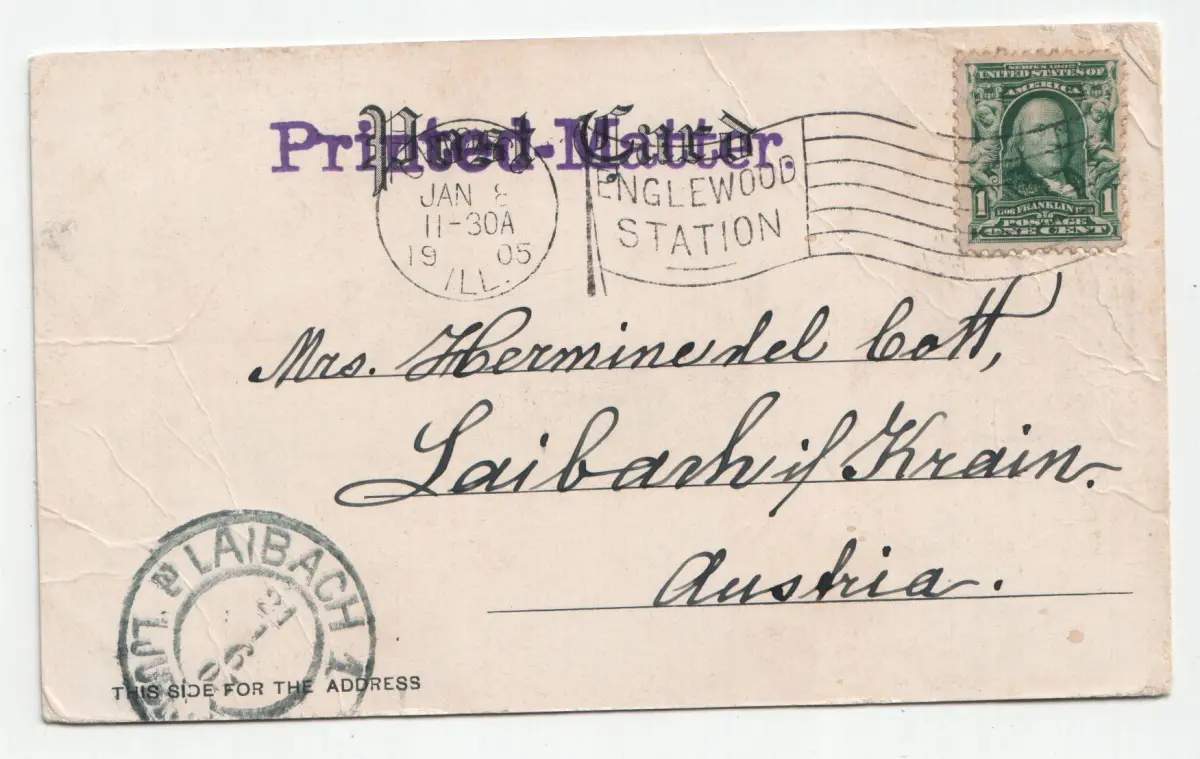 Post Card
Printed-Matter.
JAN 8
11-30A
19 05
ILL.
ENGLEWOOD
STATION
SERIES 1902
UNITED STATES OF
AMERICA
1 1706 FRANKLIN 1790 1
POSTAGE
ONE CENT
Mrs. Hermine del Cott,
Laibach i/ Krain.
Austria.
LAIBACH 1
21
THIS SIDE FOR THE ADDRESS